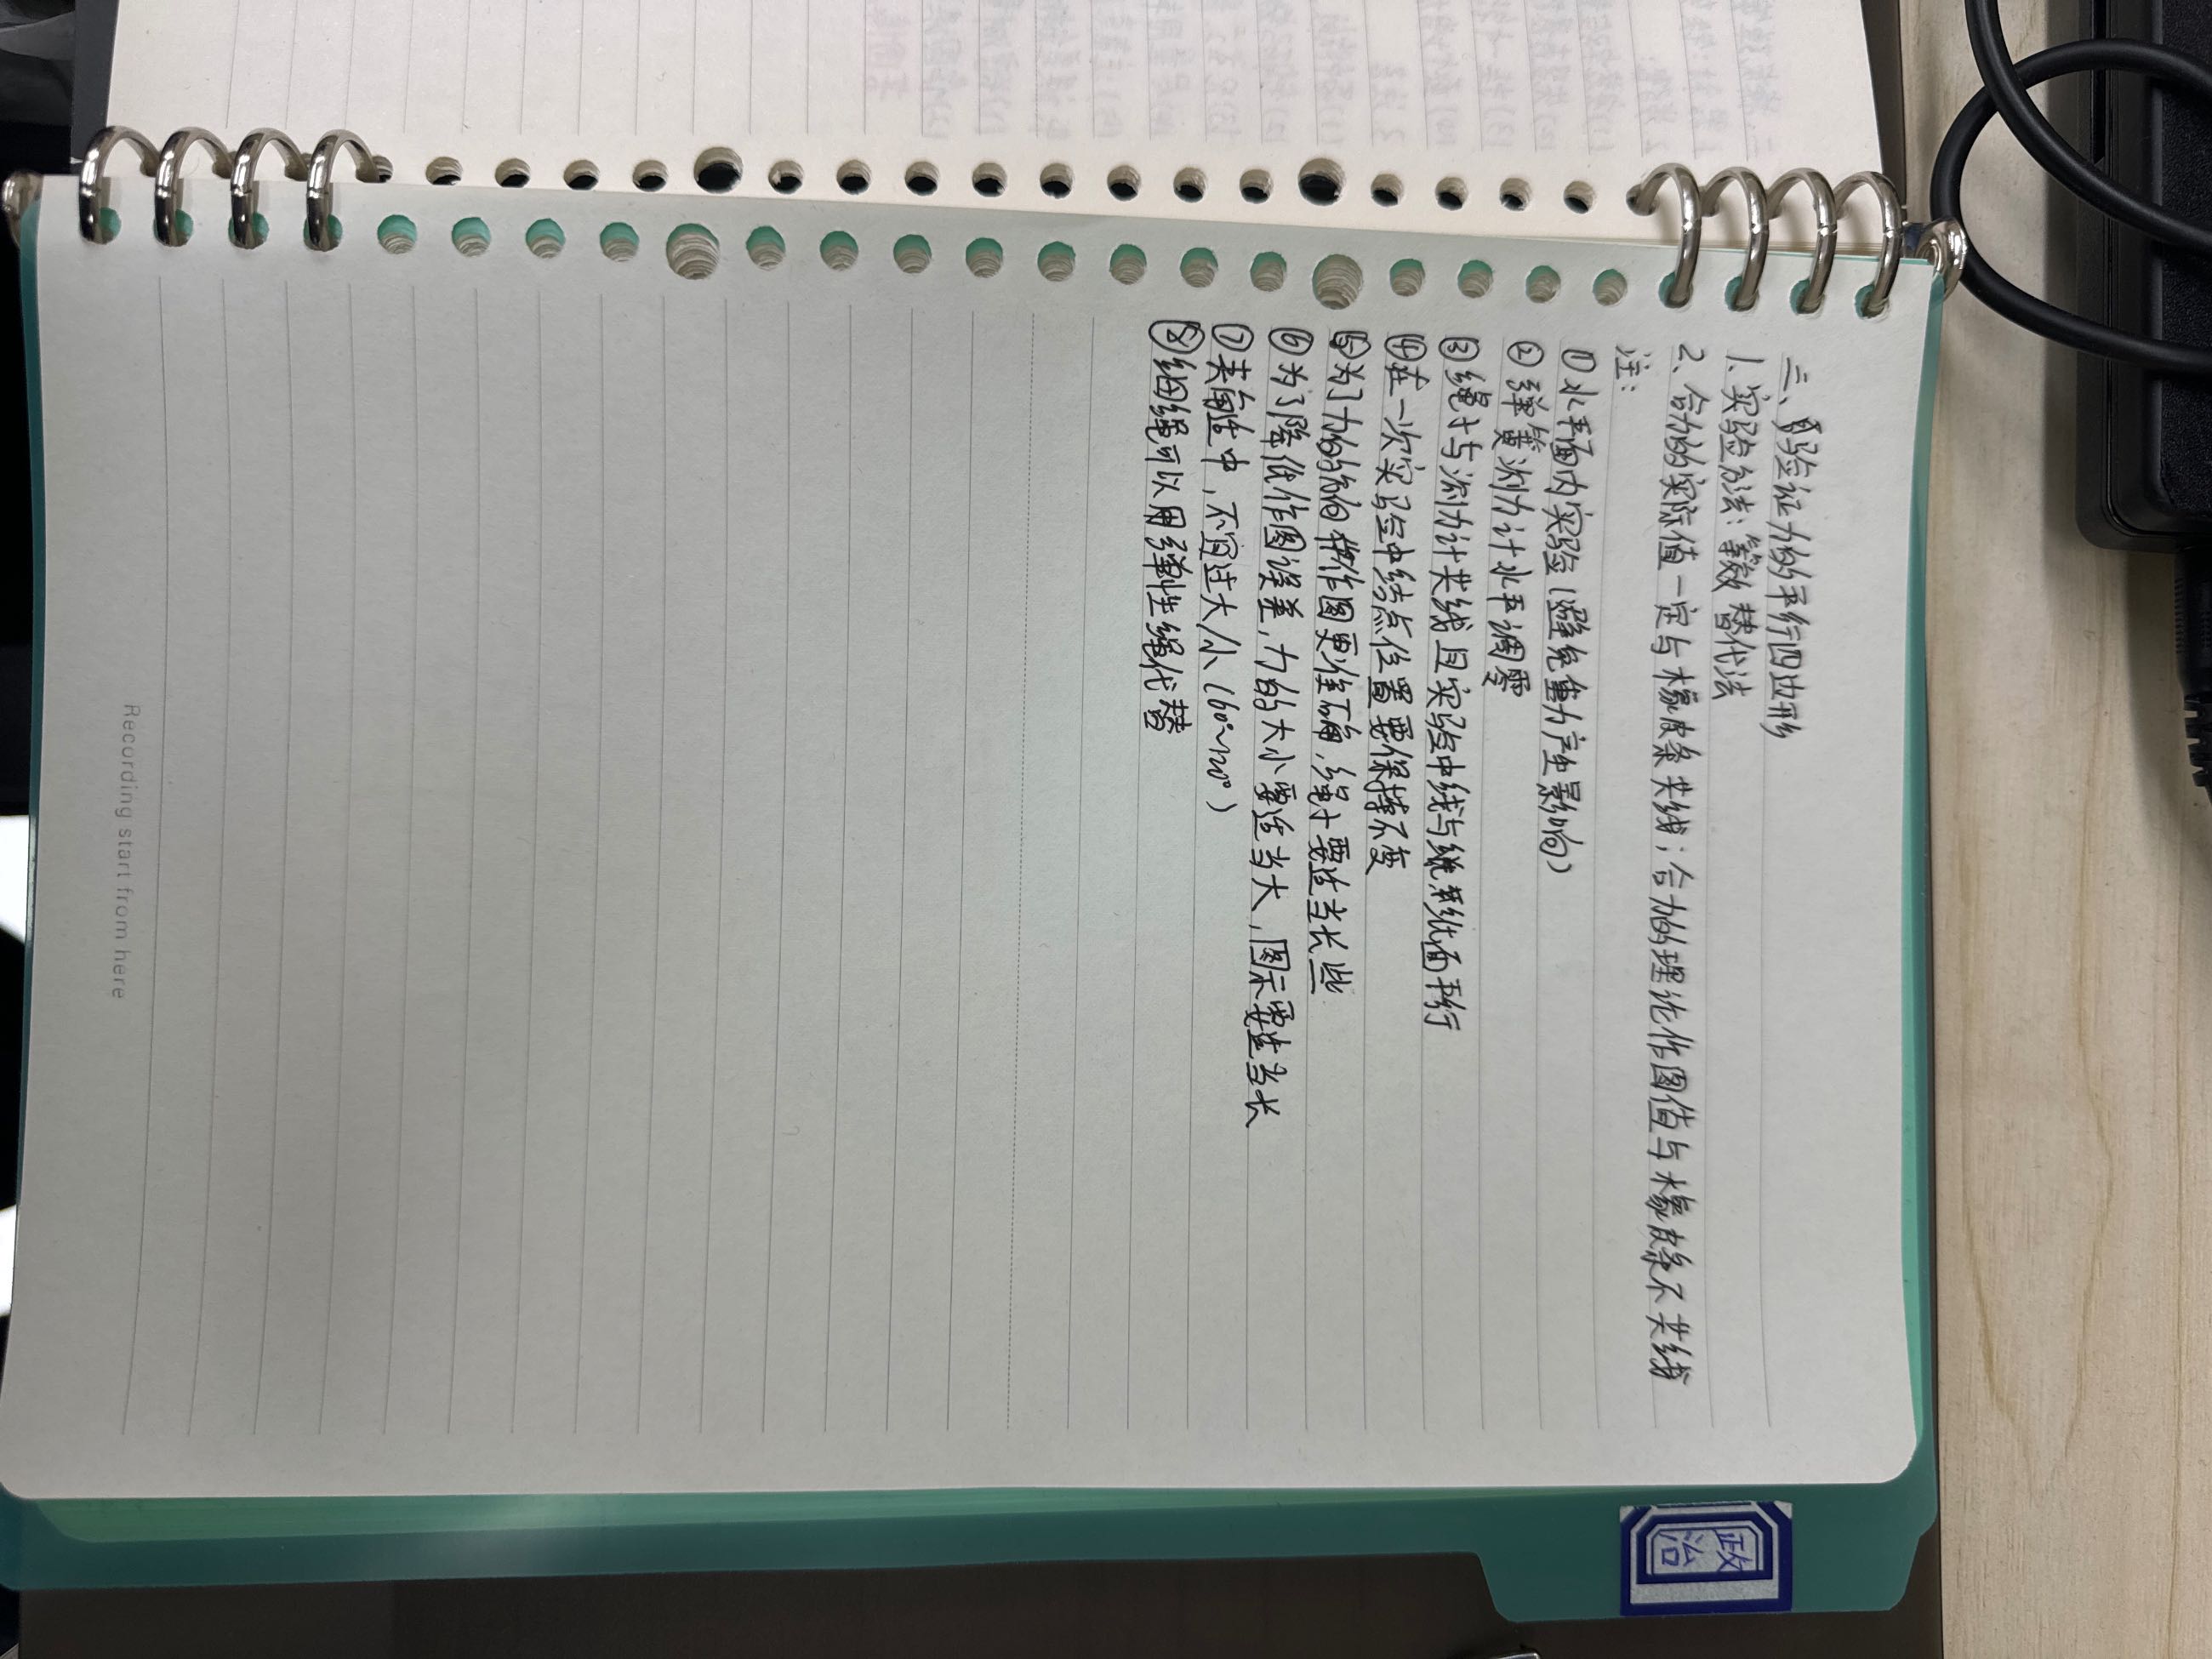 三、验证力的平行四边形
1. 实验方法：等效替代法
2. 合力的实际值一定与橡皮条共线；合力的理论作图值与橡皮条不共线
注：
① 水平面内实验（避免重力产生影响）
② 弹簧测力计水平调零
③ 绳子与测力计共线且实验中线与纸面平行
④ 在一次实验中结点位置要保持不变
⑤ 为了力的方向作图更准确，绳子要适当长些
⑥ 为了降低作图误差，力的大小要适当大，图示要适当长
⑦ 夹角适中，不宜过大/小（60°~120°）
⑧ 细绳可以用弹性绳代替
Recording start from here
政治